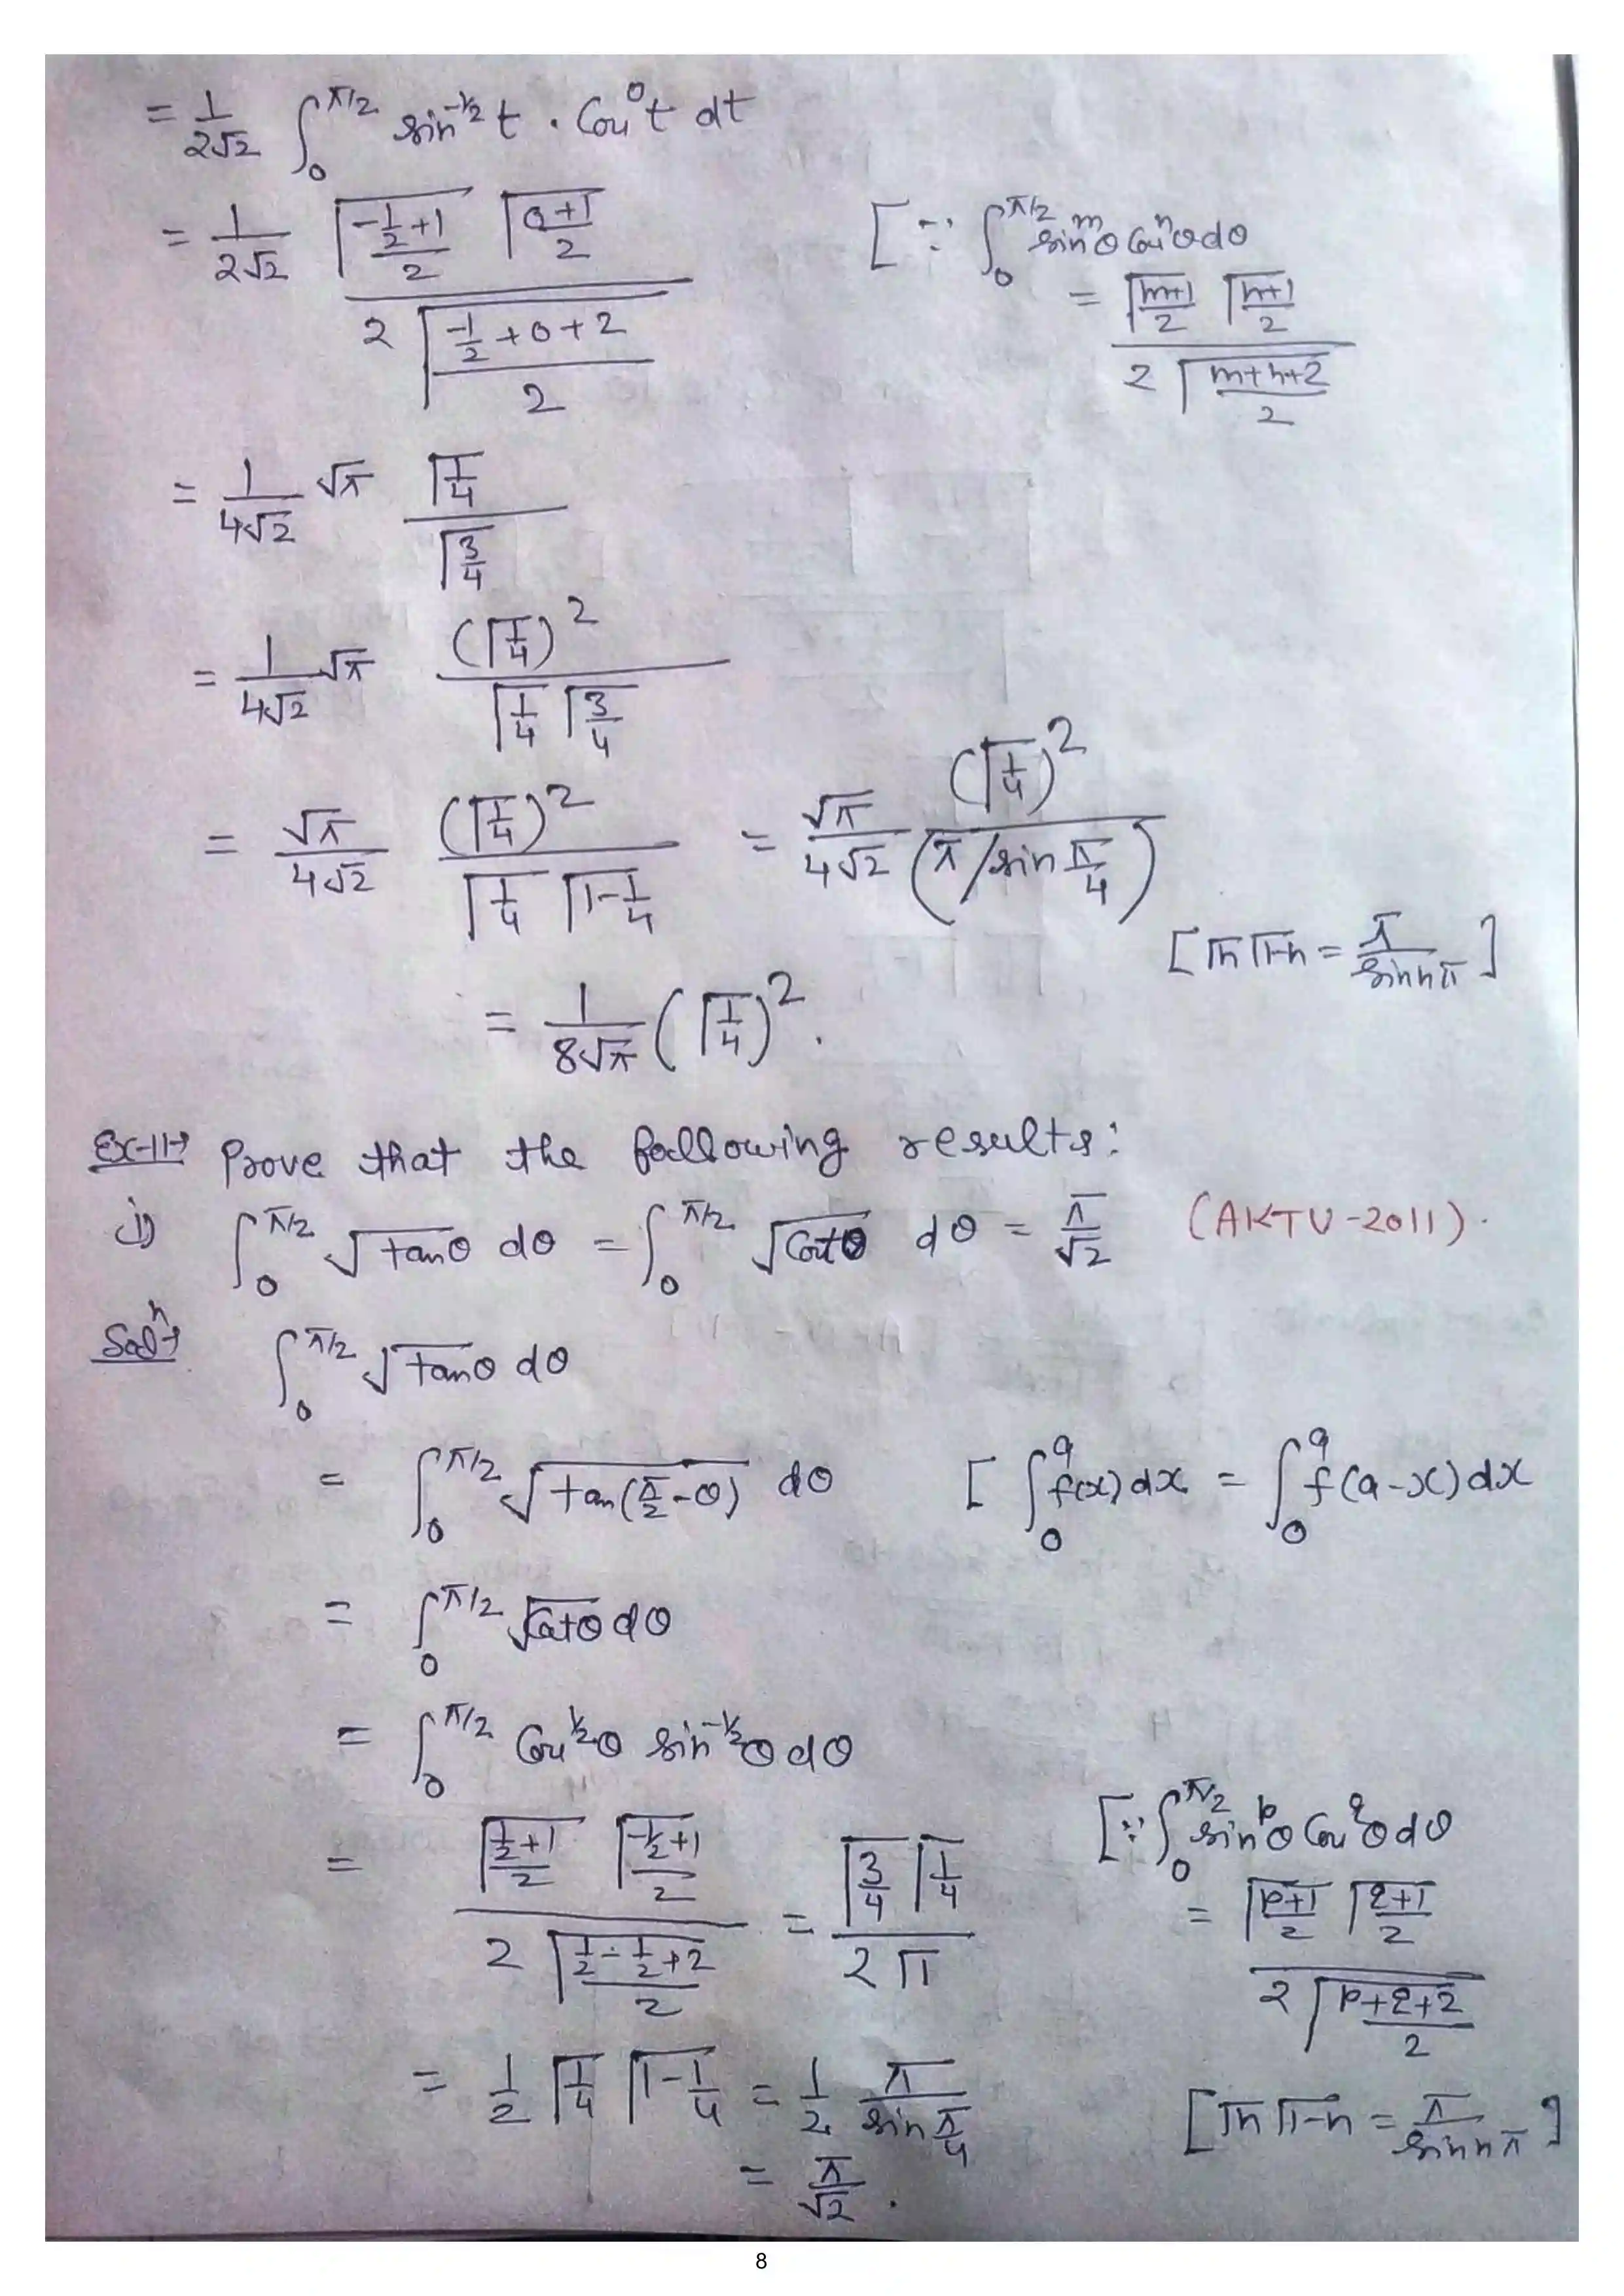 = 1/(2√2) ∫₀^{π/2} sin^{-1/2} t . Cos⁰t dt
= 1/(2√2) Γ((-1/2+1)/2) Γ((0+1)/2) / (2 Γ((-1/2+0+2)/2)) [∵ ∫₀^{π/2} sin^mθ cos^nθ dθ
= Γ((m+1)/2) Γ((n+1)/2) / (2 Γ((m+n+2)/2))
= 1/(4√2) √π Γ(1/4) / Γ(3/4)
= 1/(4√2) √π (Γ(1/4))² / (Γ(1/4) Γ(3/4))
= √π/(4√2) (Γ(1/4))² / (Γ(1/4) Γ(1-1/4)) = √π/(4√2) (Γ(1/4))² / (π/sin π/4)
[Γn Γ1-n = π/sin nπ]
= 1/(8√π) (Γ(1/4))².
Ex-11→ Prove that the following results:
(i) ∫₀^{π/2} √tanθ dθ = ∫₀^{π/2} √Cotθ dθ = π/√2 (AKTU-2011).
Solⁿ→ ∫₀^{π/2} √tanθ dθ
= ∫₀^{π/2} √tan(π/2-θ) dθ [∫₀^a f(x)dx = ∫₀^a f(a-x)dx
= ∫₀^{π/2} √Cotθ dθ
= ∫₀^{π/2} Cos^{1/2}θ sin^{-1/2}θ dθ
= Γ((1/2+1)/2) Γ((-1/2+1)/2) / (2 Γ((1/2-1/2+2)/2)) = Γ(3/4) Γ(1/4) / (2 Γ1) [∵ ∫₀^{π/2} sin^pθ Cos^qθ dθ
= Γ((p+1)/2) Γ((q+1)/2) / (2 Γ((p+q+2)/2))
= 1/2 Γ(1/4) Γ(1-1/4) = 1/2 π/(sin π/4) [Γn Γ1-n = π/sin nπ]
= π/√2 .
8